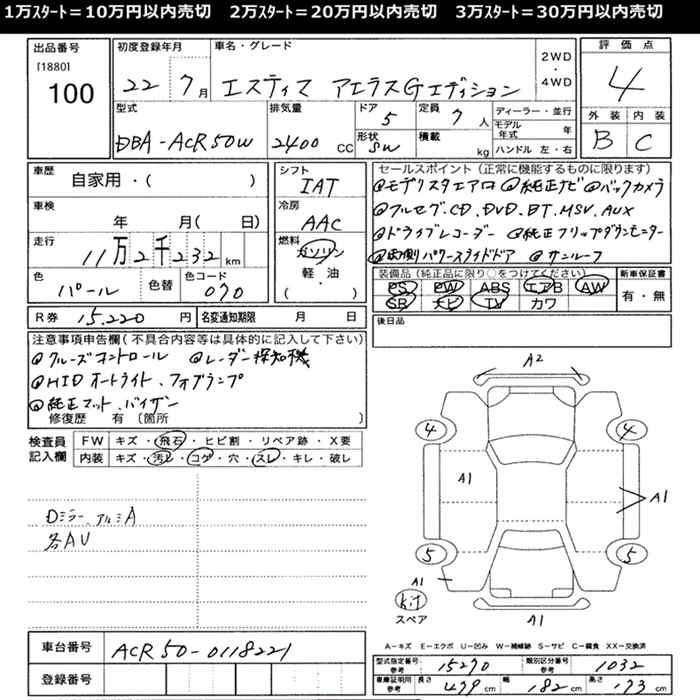 1万スタート＝10万円以内売切　2万スタート＝20万円以内売切　3万スタート＝30万円以内売切
出品番号 初度登録年月 車名・グレード 2WD・4WD 評価点
[1880]
100
22 7月 エスティマ アエラスGエディション 4
型式 排気量 ドア 定員 ディーラー・並行 外装 内装
DBA-ACR50W 2400 CC 5 7人 モデル年式 年 B C
形状 SW 積載 kg ハンドル 左・右
車歴 自家用・( )
シフト IAT
セールスポイント（正常に機能するものに限ります）
@モデリスタエアロ @純正ナビ @バックカメラ
車検 年 月( 日)
冷房 AAC
@フルセグ.CD.DVD.BT.MSV.AUX
走行 11万2千232km
燃料 ガソリン 軽・油 ( )
@ドライブレコーダー @純正フリップダウンモニター
@両側パワースライドドア @サンルーフ
色 パール 色替 色コード 070
装備品（純正品に限り○をつけてください） 新車保証書
PS PW ABS エアB AW 有・無
SR ナビ TV カワ
R券 15,220円 名変通知期限 月 日
後日品
注意事項申告欄（不具合内容等は具体的に記入して下さい）
@クルーズコントロール @レーダー探知機
@HIDオートライト、フォグランプ
@純正マット、バイザー
修復歴 有〔箇所 〕
検査員記入欄 FW キズ・飛石・ヒビ割・リペア跡・X要
内装 キズ・汚レ・コゲ・穴・スレ・キレ・破レ
Dミラー、アルミA
各AU
A2
4 4
A1 A1
5 5
A1
キット
スペア
A1
A－キズ E－エクボ U－凹み W－補修跡 S－サビ C－腐食 XX－交換済
車台番号 ACR50-0118221
登録番号
型式指定番号 参考 15270 類別区分番号 参考 1032
車庫証明用 参考 長さ 479cm 幅 182cm 高さ 173cm